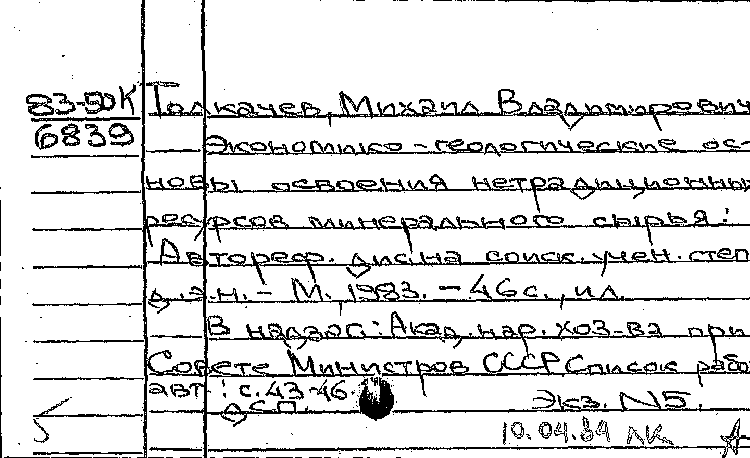 83-50К Толкачев, Михаил Владимирович
6839
Экономико-геологические ос-
новы освоения нетрадиционных
ресурсов минерального сырья:
Автореф. дис. на соиск. учен. степ.
д.э.н. - М., 1983. - 46 с., ил.
В надзаг.: Акад. нар. хоз-ва при
Совете Министров СССР. Список работ
авт.: с. 43-46.
ДСП. Экз. N5.
10.04.84